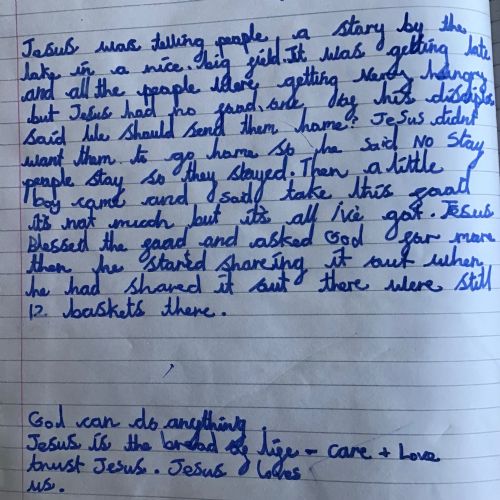 Jesus was telling people a story by the
lake in a nice. big field. It was getting late
and all the people were getting very hungry
but Jesus had no food. one by his disciples
said we should send them home? Jesus didnt
want them to go home so he said NO stay
people stay so they stayed. Then a little
boy came and said take this food
it's not much but it's all I've got. Jesus
blessed the food and asked God for more
then he started shareing it out when
he had shared it out there were still
12 baskets there.
God can do anything
Jesus is the bread of life - care + Love
trust Jesus. Jesus loves
us.